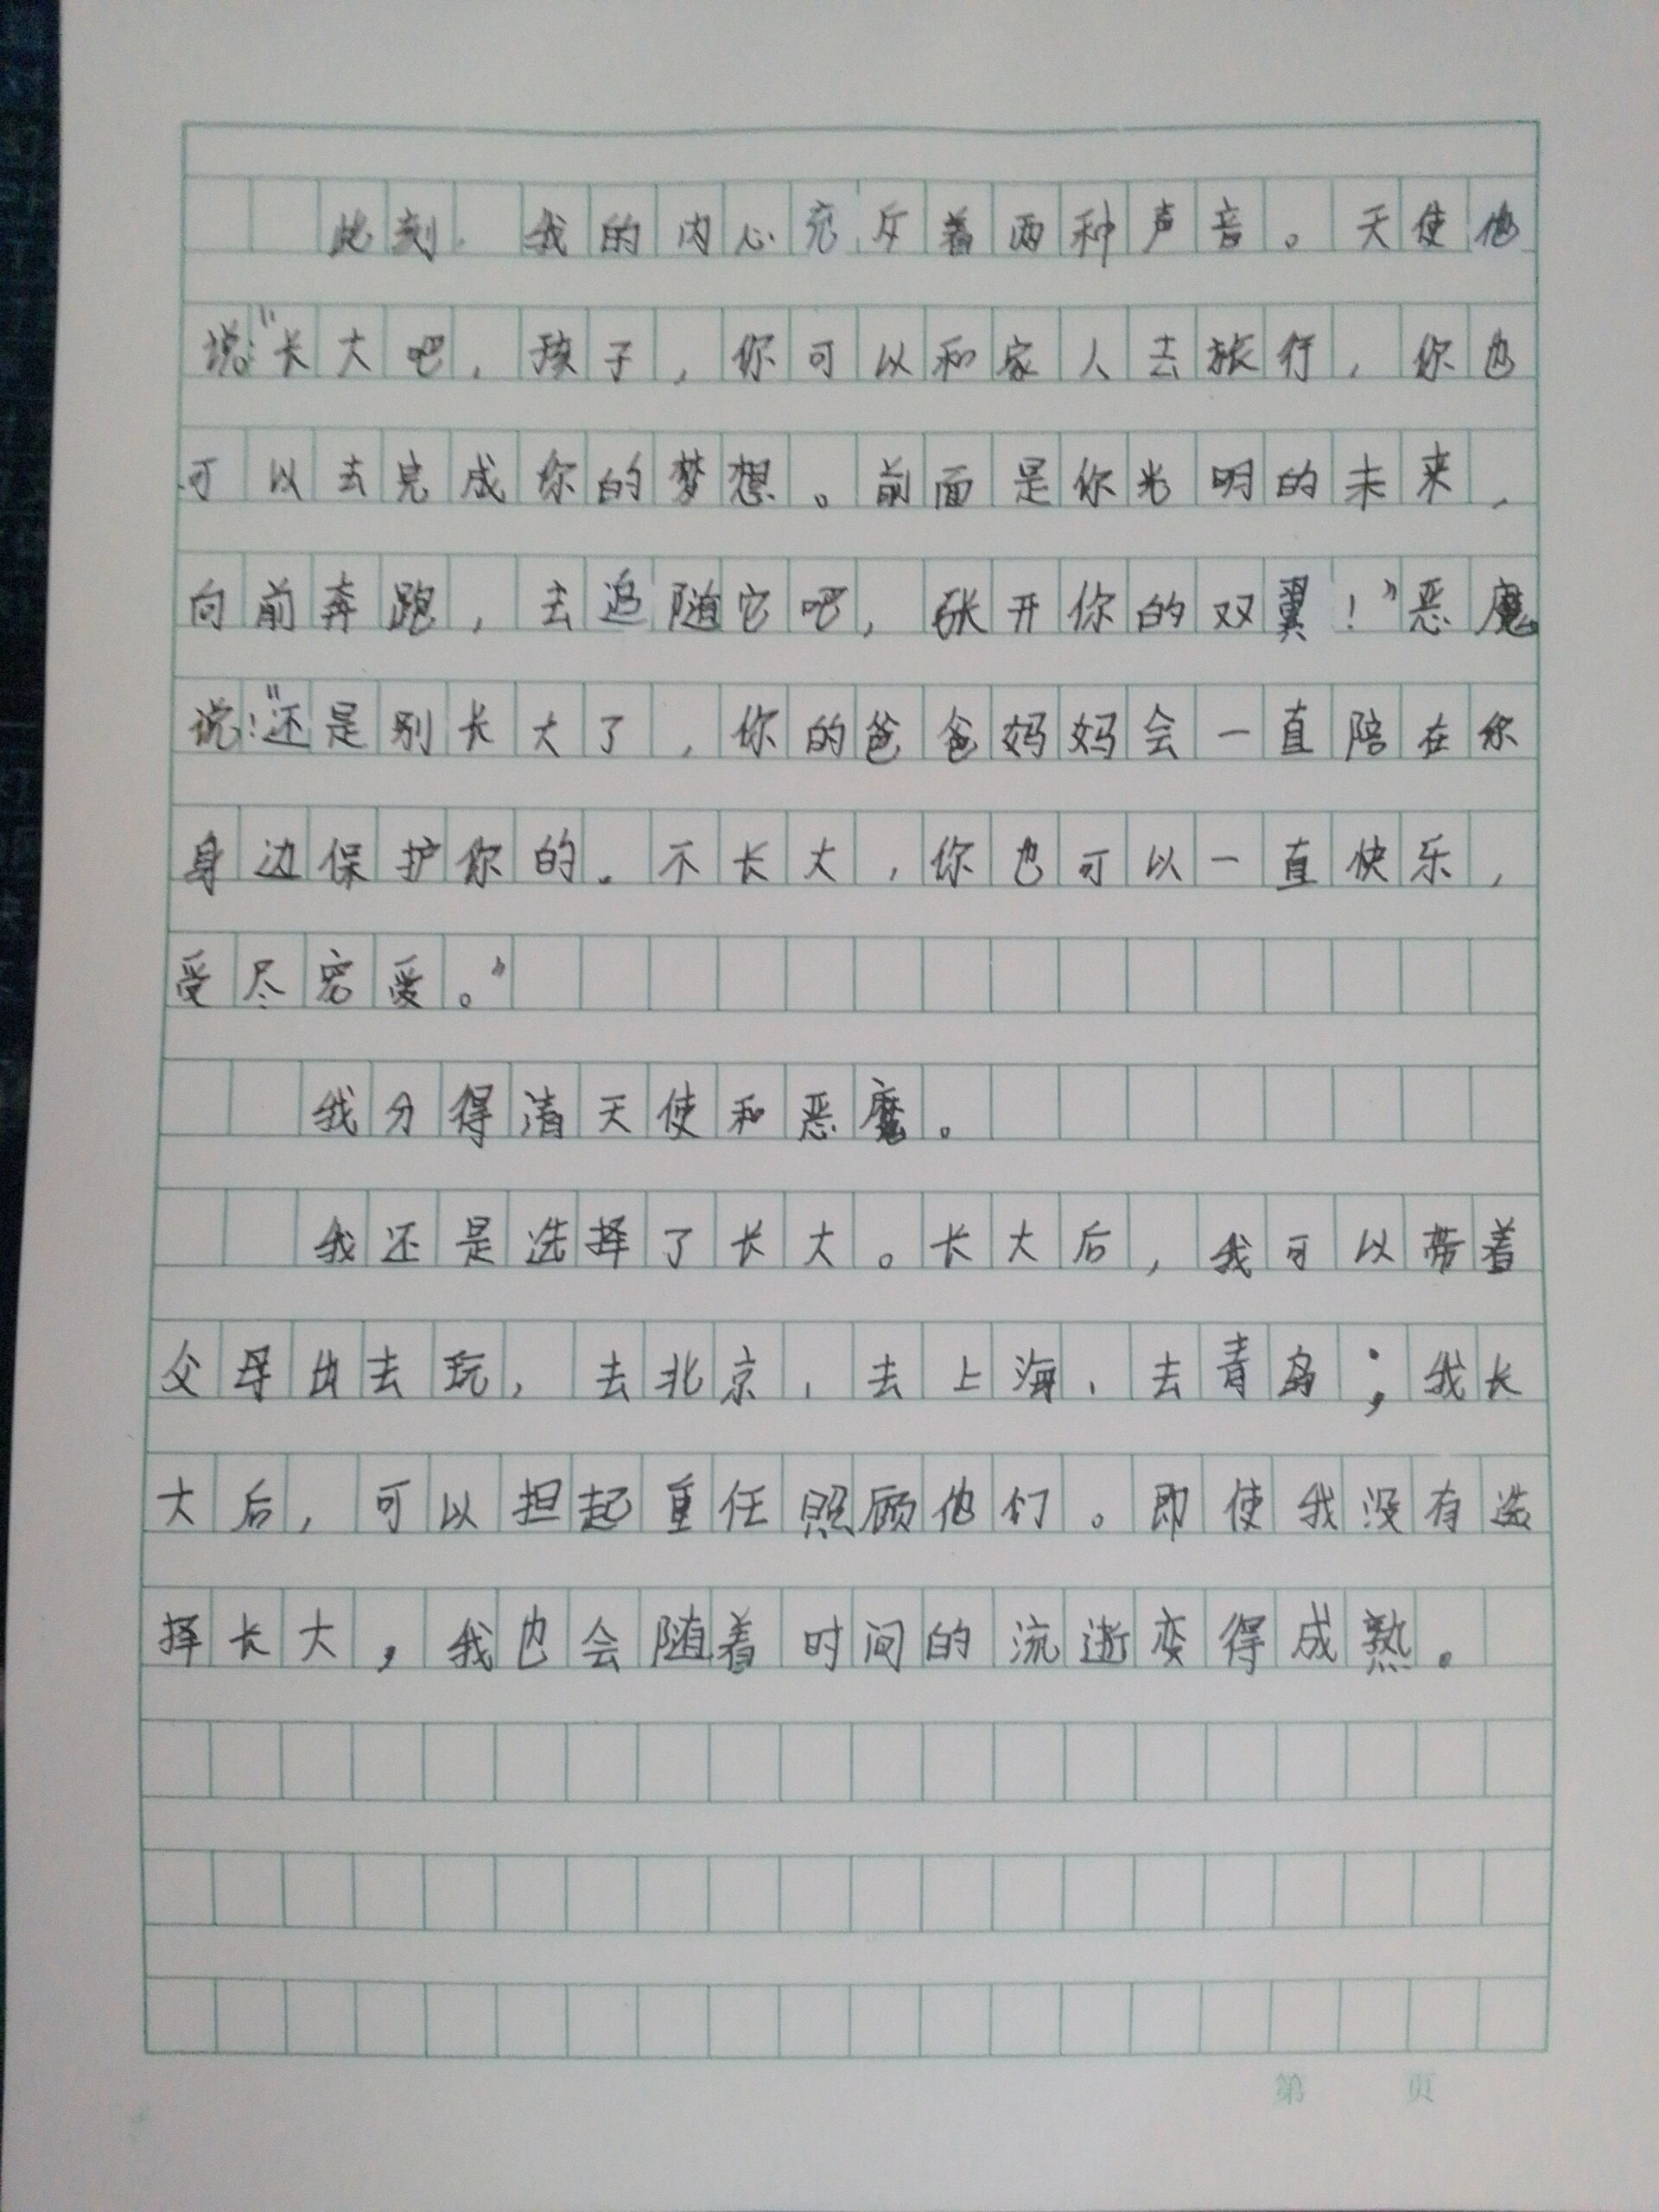 此刻，我的内心充斥着两种声音。天使他
说:“长大吧，孩子，你可以和家人去旅行，你也
可以去完成你的梦想。前面是你光明的未来，
向前奔跑，去追随它吧，张开你的双翼！”恶魔
说:“还是别长大了，你的爸爸妈妈会一直陪在你
身边保护你的。不长大，你也可以一直快乐，
受尽宠爱。”
我分得清天使和恶魔。
我还是选择了长大。长大后，我可以带着
父母出去玩，去北京，去上海，去青岛；我长
大后，可以担起重任照顾他们。即使我没有选
择长大，我也会随着时间的流逝变得成熟。
第 页